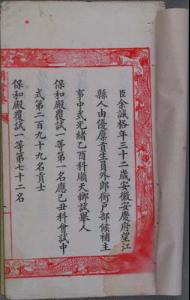 臣余誠格年三十二歲安徽安慶府望江
縣人由優廩貢生員外郎銜戶部候補主
事中式光緒乙酉科順天鄉試舉人
保和殿覆試一等第一名應己丑科會試中
式第二百九十九名貢士
保和殿覆試一等第七十二名